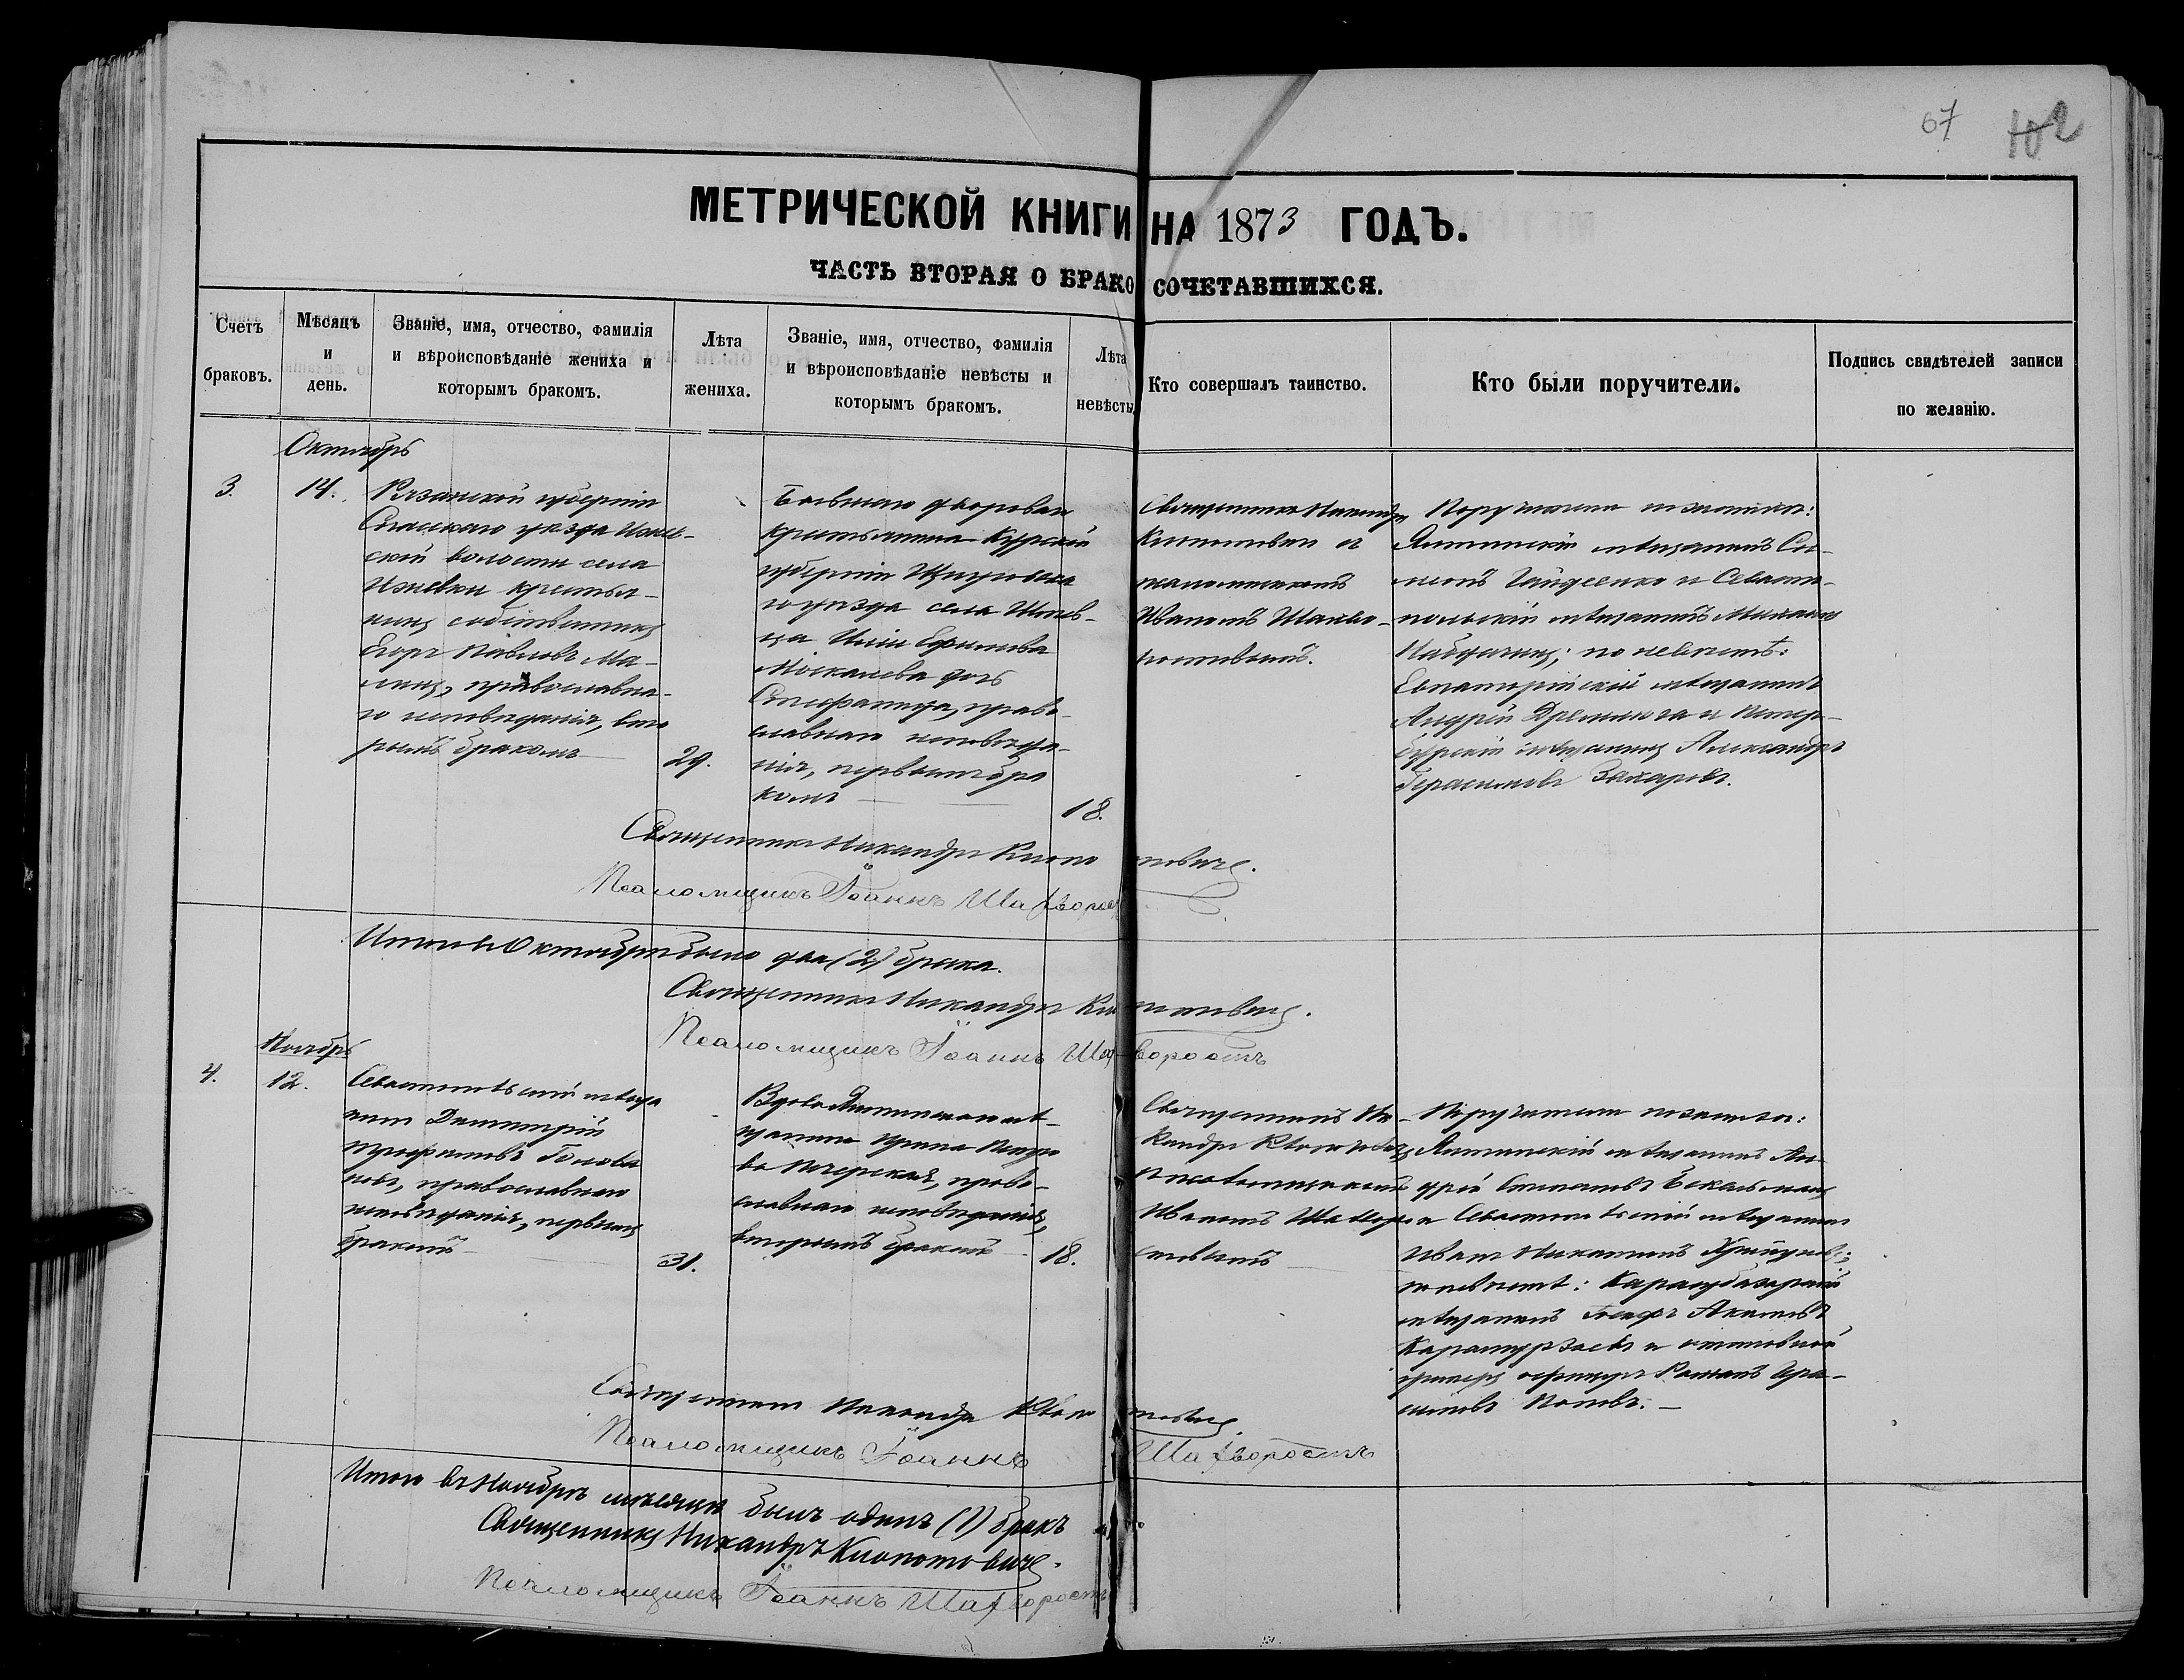 67
102
МЕТРИЧЕСКОЙ КНИГИ НА 1873 ГОДЪ.
ЧАСТЬ ВТОРАЯ О БРАКОСОЧЕТАВШИХСЯ.
Счетъ браковъ.
Мѣсяцъ и день.
Званіе, имя, отчество, фамилія
и вѣроисповѣданіе жениха и
которымъ бракомъ.
Лѣта
жениха.
Званіе, имя, отчество, фамилія
и вѣроисповѣданіе невѣсты и
которымъ бракомъ.
Лѣта
невѣсты
Кто совершалъ таинство.
Кто были поручители.
Подпись свидѣтелей записи
по желанію.
Октябрь
3.
14.
Рязанской губерніи
Спаскаго уезда Ижев-
ской волости села
Ижевки крестья-
нинъ собственникъ
Егоръ Павловъ Ма-
православна-
го исповеданія, вто
рымъ бракомъ
29.
Бывшаго дворова
крестьянина Курской
губерніи Щигровска
го уезда села
Ефимова
Москалева дочь
Стефанида, право-
славнаго исповеда-
нія, первымъ бра
комъ
18.
Священникъ Никандръ
съ
псаломщикомъ
Иваномъ Шахво-
ростовымъ.
Поручители по женихе:
Ялтинскій мѣщанинъ Си-
меонъ Гайдеенко и Севасто-
польскій мѣщанинъ Михаилъ
по невѣстѣ:
Евпаторійскій мѣщанинъ
Андрей и Петер-
бургскій мѣщанинъ Александръ
Герасимовъ Захаровъ.
Священникъ Никандръ Клопотовичъ.
Псаломщикъ Іоаннъ Шахворостъ
Итого въ Октябре было два (2) брака.
Священникъ Никандръ Клопотовичъ.
Псаломщикъ Іоаннъ Шахворостъ
Ноябрь
4.
12.
Севастопольскій мѣща
нинъ Димитрій
Трофимовъ Голова
новъ, православнаго
исповеданія, первымъ
бракомъ
31.
Вдова Ялтинскаго мѣ-
щанина Ирина Петро
ва Печерская, право-
славнаго исповеданія,
вторымъ бракомъ
18.
Священникъ Ни-
кандръ Клопотовичъ
съ псаломщикомъ
Иваномъ Шахворо
стовымъ
Поручители по женихе:
Ялтинскій мѣщанинъ Ан-
дрей Степановъ
и Севастопольскій мѣщанинъ
Иванъ
по невѣстѣ: Карасубазарскій
мѣщанинъ Іосифъ Акимовъ
и отставной
унтеръ офицеръ Романъ Гра-
Поповъ.
Священникъ Никандръ Клопотовичъ.
Псаломщикъ Іоаннъ Шахворостъ
Итого въ Ноябрѣ мѣсяцѣ былъ одинъ (1) бракъ
Священникъ Никандръ Клопотовичъ.
Псаломщикъ Іоаннъ Шахворостъ